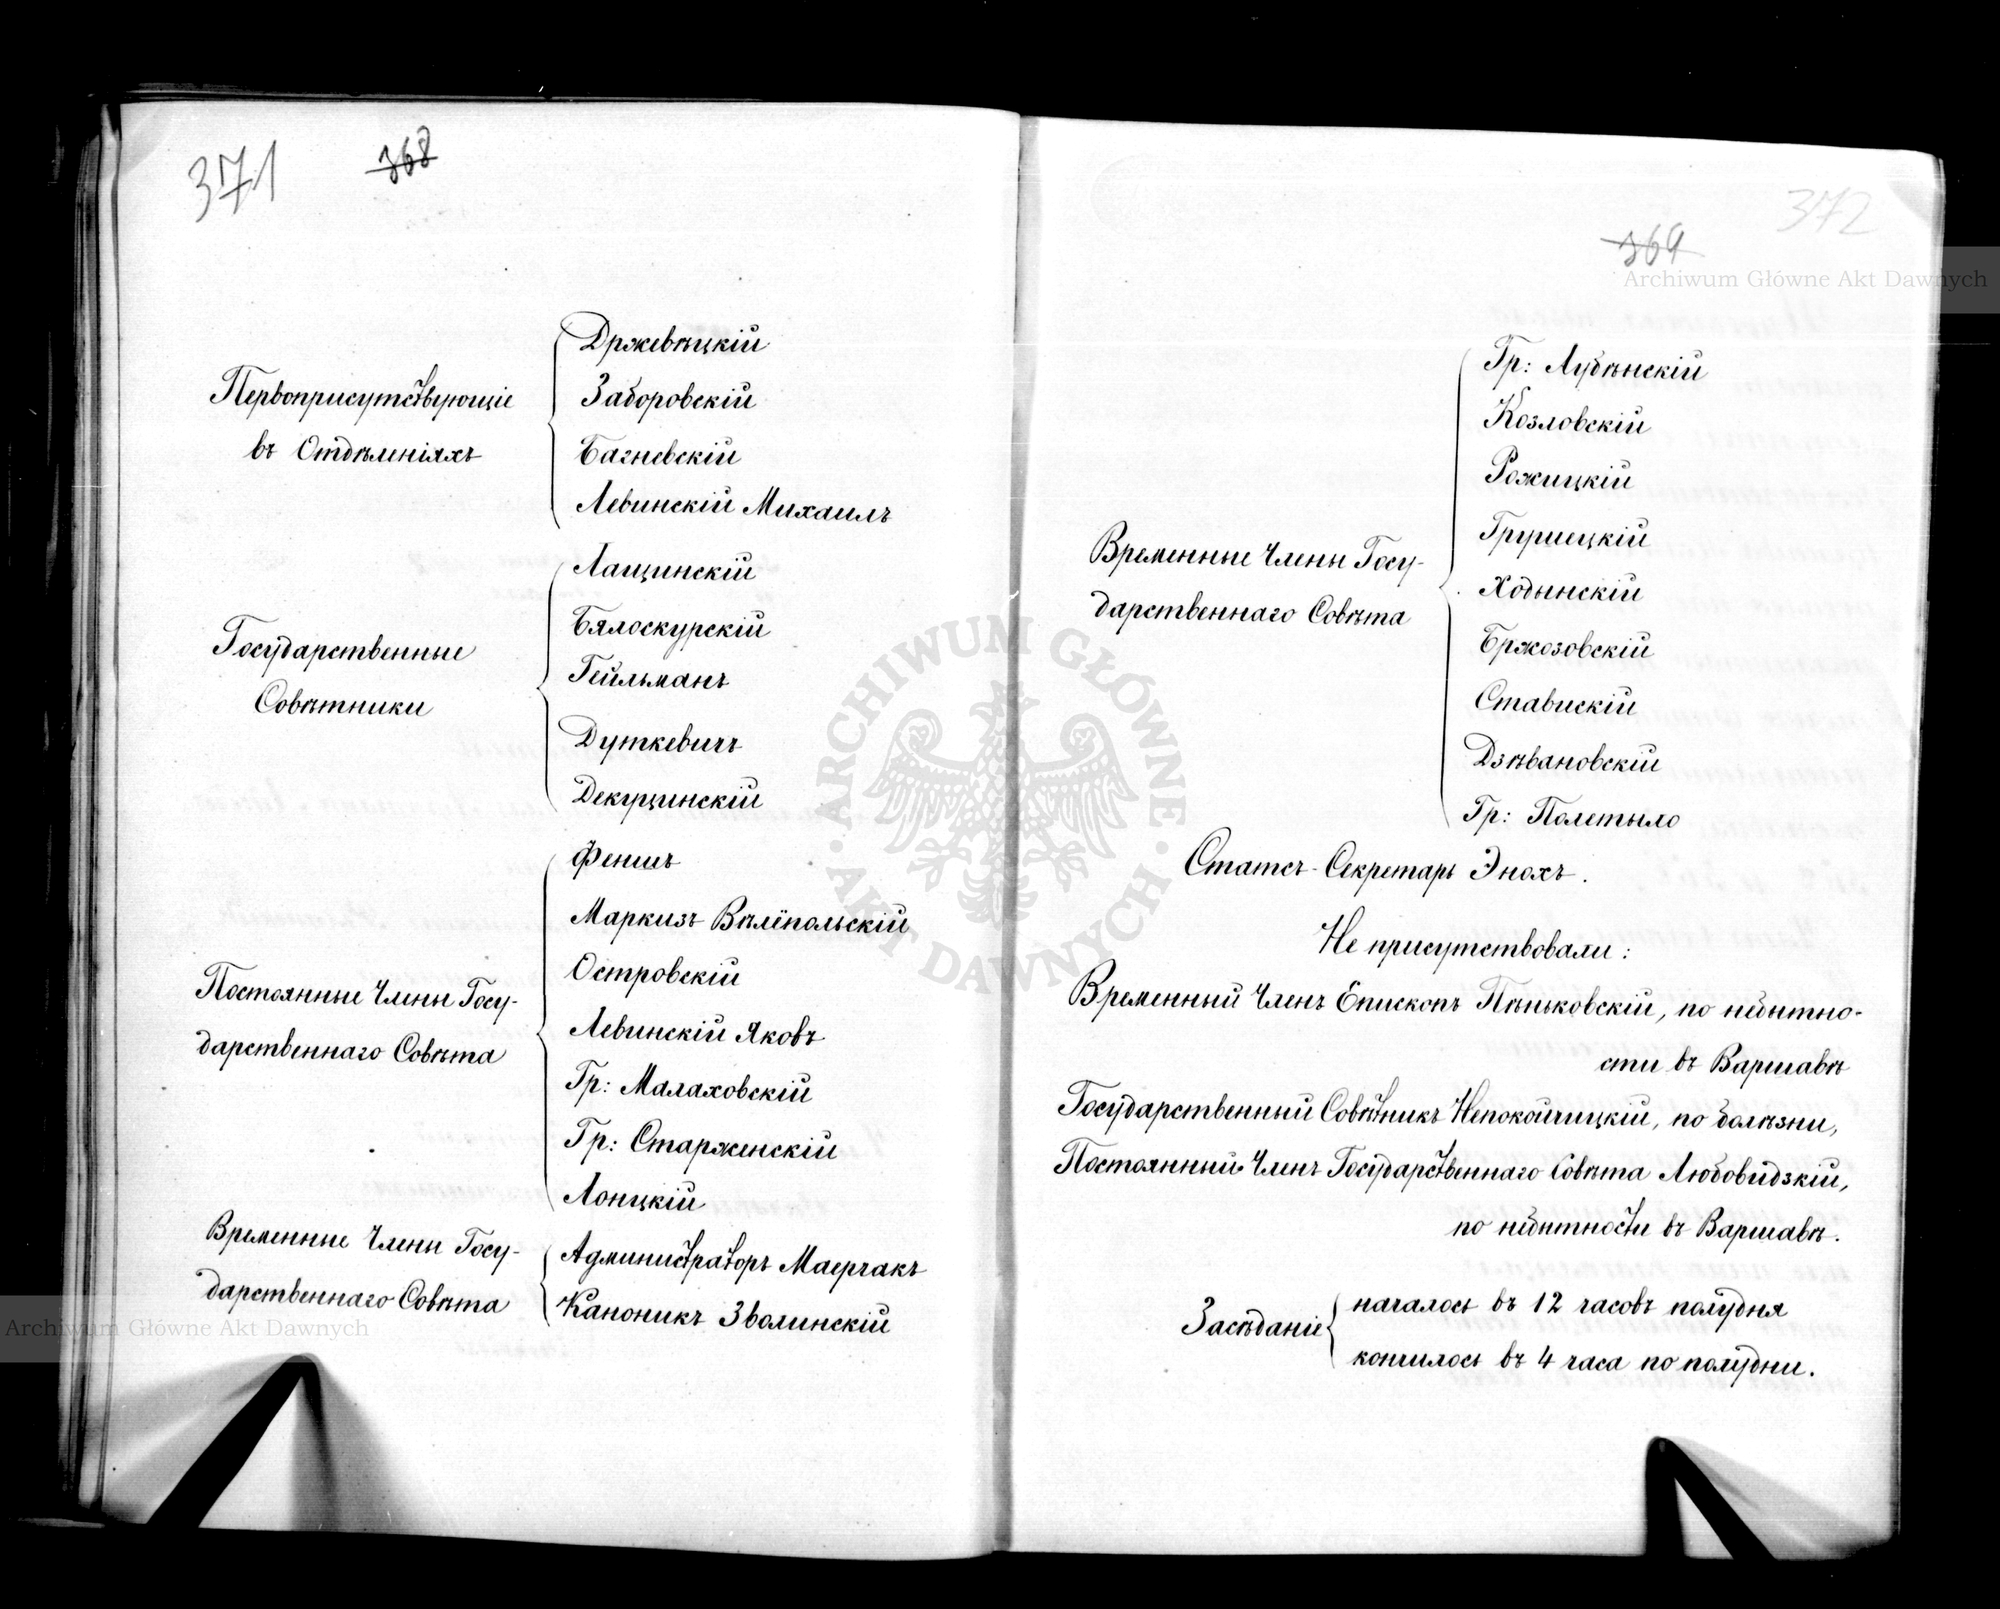 371 368
Первоприсутствующіе
въ Отдѣленіяхъ
Држевѣцкій
Заборовскій
Багневскій
Левинскій Михаилъ
Государственные
Совѣтники
Лащинскій
Бялоскурскій
Гейльманъ
Дуткевичъ
Декуцинскій
Постоянные Члены Госу-
дарственнаго Совѣта
Феншъ
Маркизъ Вѣлёпольскій
Островскій
Левинскій Яковъ
Гр: Малаховскій
Гр: Старженскій
Лонцкій
Временные Члены Госу-
дарственнаго Совѣта
Администраторъ Маерчакъ
Каноникъ Зволинскій
372
369
Временные Члены Госу-
дарственнаго Совѣта
Гр: Лубѣнскій
Козловскій
Рожицкій
Грушецкій
Ходынскій
Бржозовскій
Ставискій
Дзѣвановскій
Гр: Полетыло
Статсъ-Секретарь Энохъ.
Не присутствовали:
Временный Членъ Епископъ Пѣньковскій, по небытно-
сти въ Варшавѣ
Государственный Совѣтникъ Непокойчицкій, по болѣзни,
Постоянный Членъ Государственнаго Совѣта Любовидзкій,
по небытности въ Варшавѣ.
Засѣданіе
началось въ 12 часовъ полудня
кончилось въ 4 часа по полудни.
Archiwum Główne Akt Dawnych
ARCHIWUM GŁÓWNE · AKT DAWNYCH ·
Archiwum Główne Akt Dawnych